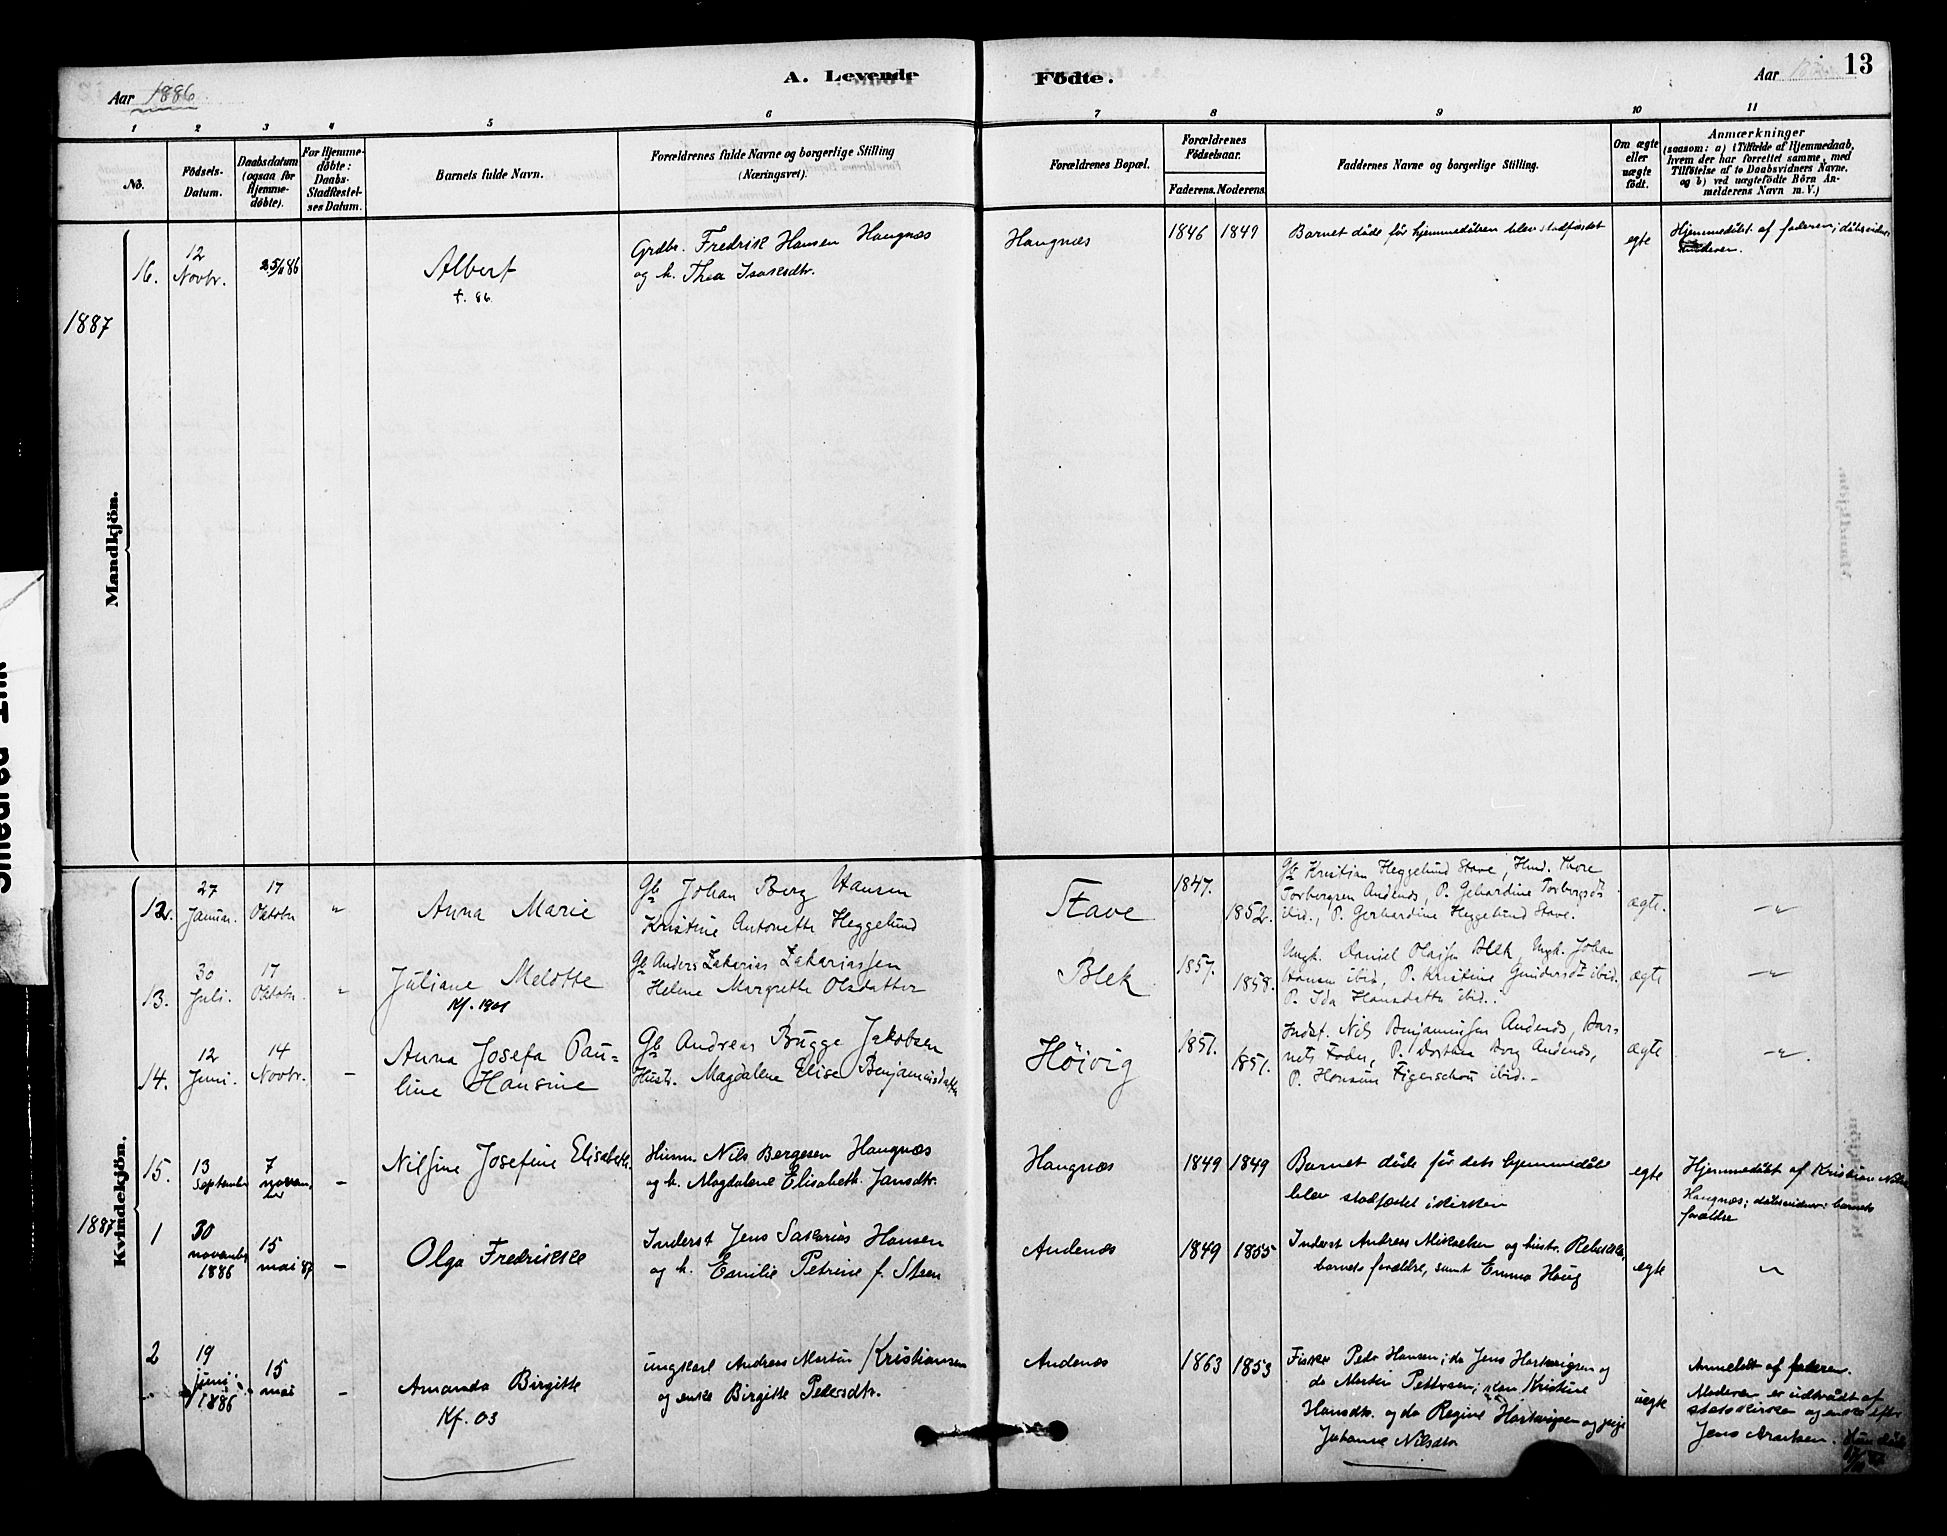 Aar 1886
A. Levende Födte.
Aar
13
1 2 3 4 5 6 7 8 9 10 11
No.
Födsels-
Datum.
Daabsdatum
(ogsaa for
Hjemme-
döbte).
For Hjemme-
döbte:
Daabs-
Stadfæstel-
ses Datum.
Barnets fulde Navn.
Forældrenes fulde Navne og borgerlige Stilling
(Næringsvei).
Forældrenes Bopæl.
Forældrenes
Födselsaar.
Faderens. Moderens.
Faddernes Navne og borgerlige Stilling.
Om ægte
eller
uægte
födt.
Anmærkninger
(saasom: a) i Tilfælde af Hjemmedaab,
hvem der har forrettet samme, med
Tilföielse af to Daabsvidners Navne,
og b) ved uægtefödte Börn An-
melderens Navn m. V.)
Mandkjön.
16.
12
Novbr.
25/11 86
Albert
†. 86
Grdbr. Fredrik Hansen Haugnæs
og h. Thea Isaksdtr.
Haugnæs
1846 1849
Barnet döde för hjemmedåben blev stadfæstet
egte
Hjemmedöbt af faderen; dåbsvidne:
moderen.
1887
Kvindekjön.
12.
27
Januar.
17
Oktobr
"
Anna Marie
Gb Johan Berg Hansen
Kristine Antonette Heggelund
Stave
1847.
1852.
Gb Kristian Heggelund Stave, Husd. Thore
Torbergsen Andenæs, P. Gehardine Torbergsdt
ibid., P. Gerhardine Heggelund Stave.
ægte.
—"—
13.
30
Juli.
17
Oktobr.
"
Juliane Melotte
Kf. 1901
Gb Anders Zakarias Zakariassen
Helene Margrethe Olsdatter
Blek
1857.
1858.
Ungk. Daniel Olaisen Blek, Ungk. Johan
Hansen ibid, P. Kristine Gundersdt ibid.
P. Ida Hansdatter ibid..
ægte
—"—
14.
12
Juni.
14
Novbr.
—
Anna Josefa Pau-
line Hansine
Gb Andreas Brugge Jakobsen
Hustr. Magdalene Elise Benjaminsdatter
Höivig
1851.
1851.
Indst. Nils Benjaminsen Andenæs, Bar-
nets Fader, P. Dorthea Borg Andenæs,
P. Hansine Figenschou ibid.—
ægte
—"—.
15.
13
September
7
novem-
ber
—
Nilsine Josefine Elisabeth.
Husm. Nils Bergesen Haugnæs
og h. Magdalene Elisabeth Jansdtr.
Haugnæs
1849 1849
Barnet döde för dets hjemmedåb
blev stadfæstet i kirken
egte
Hjemmedöbt af Kristian Nils
Haugnæs; dåbsvidner: barnets
forældre
1887
1
30
november
1886
15
mai 87
—
Olga Fredrikke
Inderst Jens Sakarias Hansen
og h. Emilie Petrine f. Steen
Andenæs
1849 1855
Inderst Andreas Mikaelsen og hustr. Rebekka,
barnets forældre, samt Emma Haug
egte
"
2
19
juni
1886
15
mai
—
Amanda Birgitte
Kf. 03
ungkarl Andreas Martin Kristiansen
og enke Birgitte Pedersdtr.
Andenæs
1863 1853
Fisker Peder Hansen; do Jens Hartvigsen og
do Martin Pettersen; kone Kristine
Hansdtr. og do Regine Hartvigsen og pige
Johanne Nilsdtr
uegte
Anmeldt af faderen.
Moderen er udtrådt af
statskirken og enke efter
Jens Arntsen. Hun döde